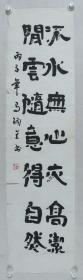 流水無心高潔
閒雲隨意得自然
丙子年